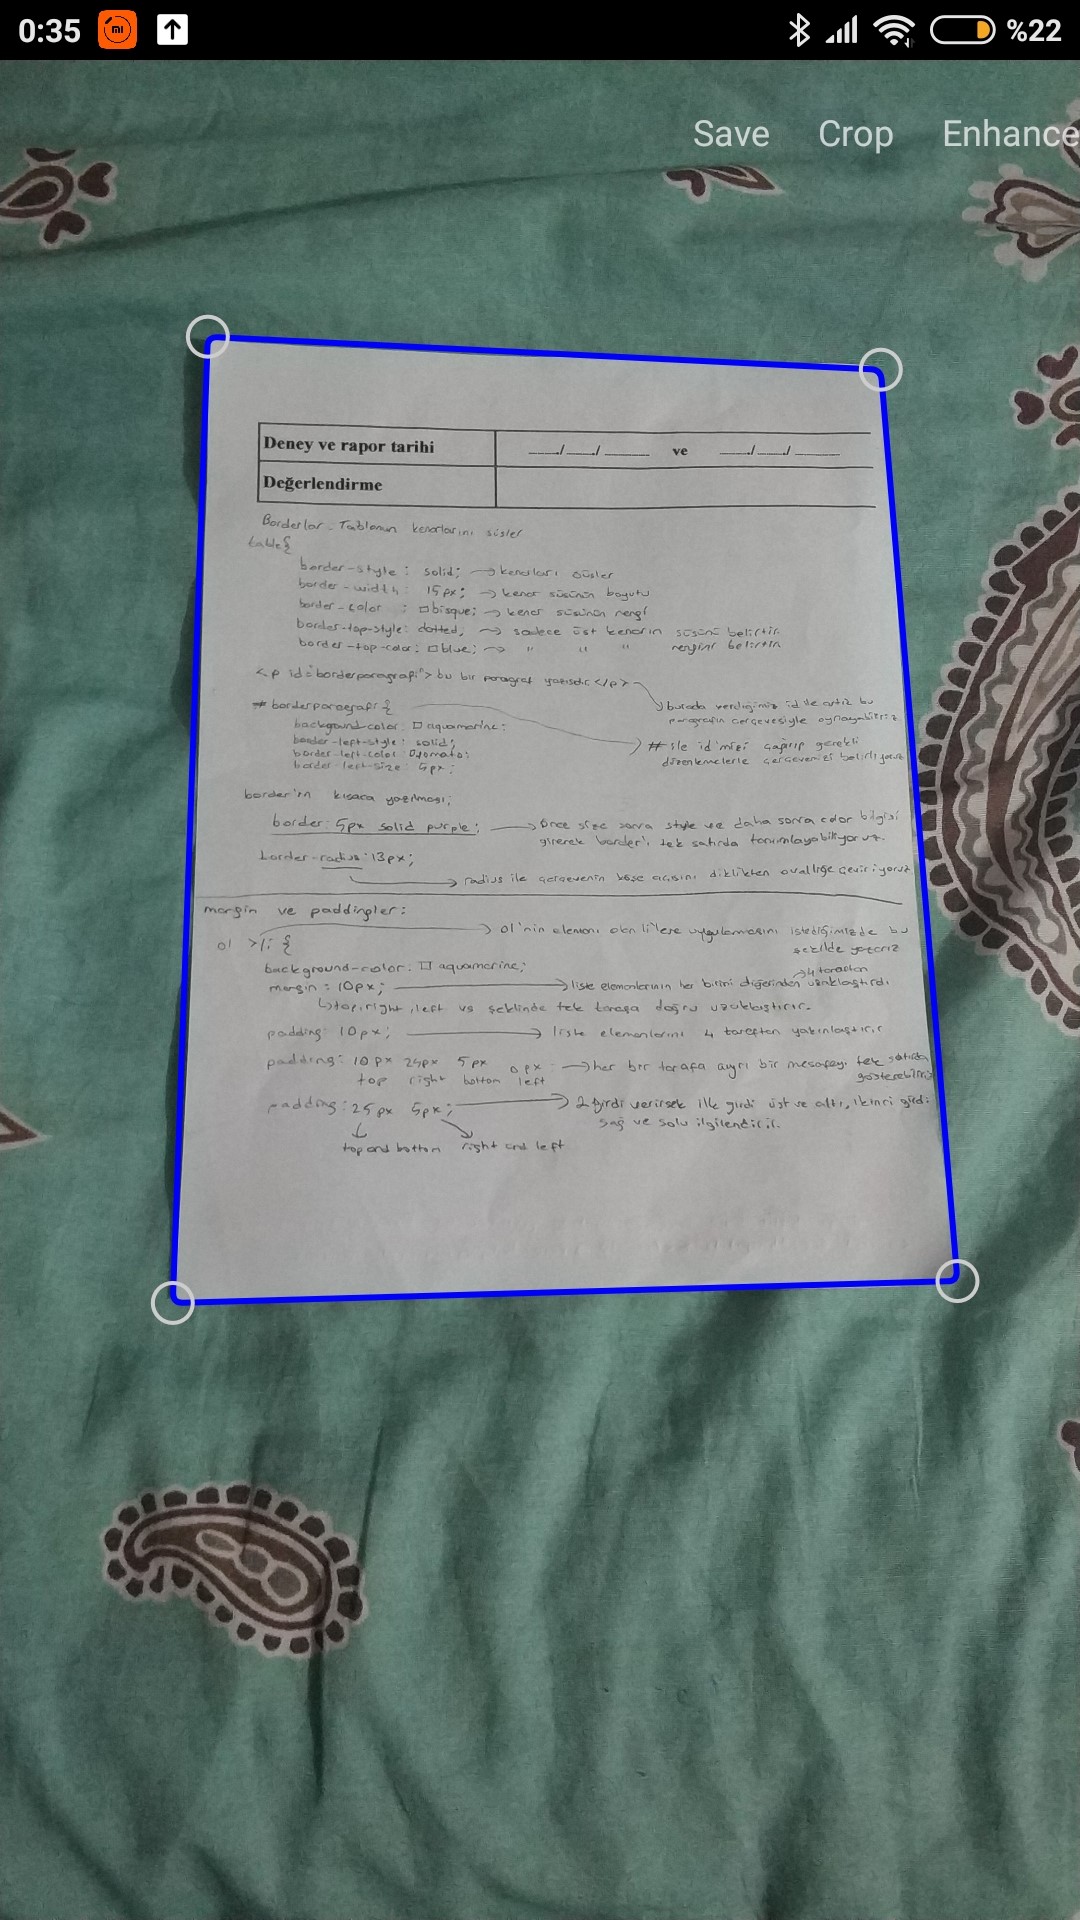 0:35
%22
Save Crop Enhance
Deney ve rapor tarihi ___/___/_____ ve ___/___/_____
Değerlendirme
Borderlar - Tablonun kenarlarını süsler
table{
border-style: solid; → kenarları süsler
border-width: 15px; → kenar süsünün boyutu
border-color: bisque; → kenar süsünün rengi
border-top-style: dotted; → sadece üst kenarın süsünü belirtir.
border-top-color: blue; → " " " rengini belirtir
<p id="borderparagrafi"> bu bir paragraf yazısıdır. </p>
burada verdiğimiz id ile artık bu
paragrafın çerçevesiyle oynayabiliriz.
#borderparagrafi {
background-color: aquamarine;
border-left-style: solid;
border-left-color: tomato;
border-left-size: 5px;
# ile id'mizi çağırıp gerekli
düzenlemelerle çerçevemizi belirliyoruz
border'ın kısaca yazılması;
border: 5px solid purple; → Önce size sonra style ve daha sonra color bilgisi
girerek border'ı tek satırda tanımlayabiliyoruz.
border-radius: 13px;
→ radius ile çerçevenin köşe açısını diklikten ovalliğe çeviriyoruz
margin ve paddingler:
ol > li { → ol'nin elemanı olan li'lere uygulamasını istediğimizde bu
şekilde yazarız
background-color: aquamarine;
margin: 10px; → liste elemanlarının her birini diğerinden 4 taraftan uzaklaştırdı.
↳ top, right, left vs şeklinde tek tarafa doğru uzaklaştırır.
padding: 10px; → liste elemanlarını 4 taraftan yakınlaştırır
padding: 10px 25px 5px 0px → her bir tarafa ayrı bir mesafeyi tek satırda
top right bottom left gösterebiliriz
padding: 25px 5px; → 2 girdi verirsek ilk girdi üst ve altı, ikinci girdi
sağ ve solu ilgilendirir.
top and bottom right and left